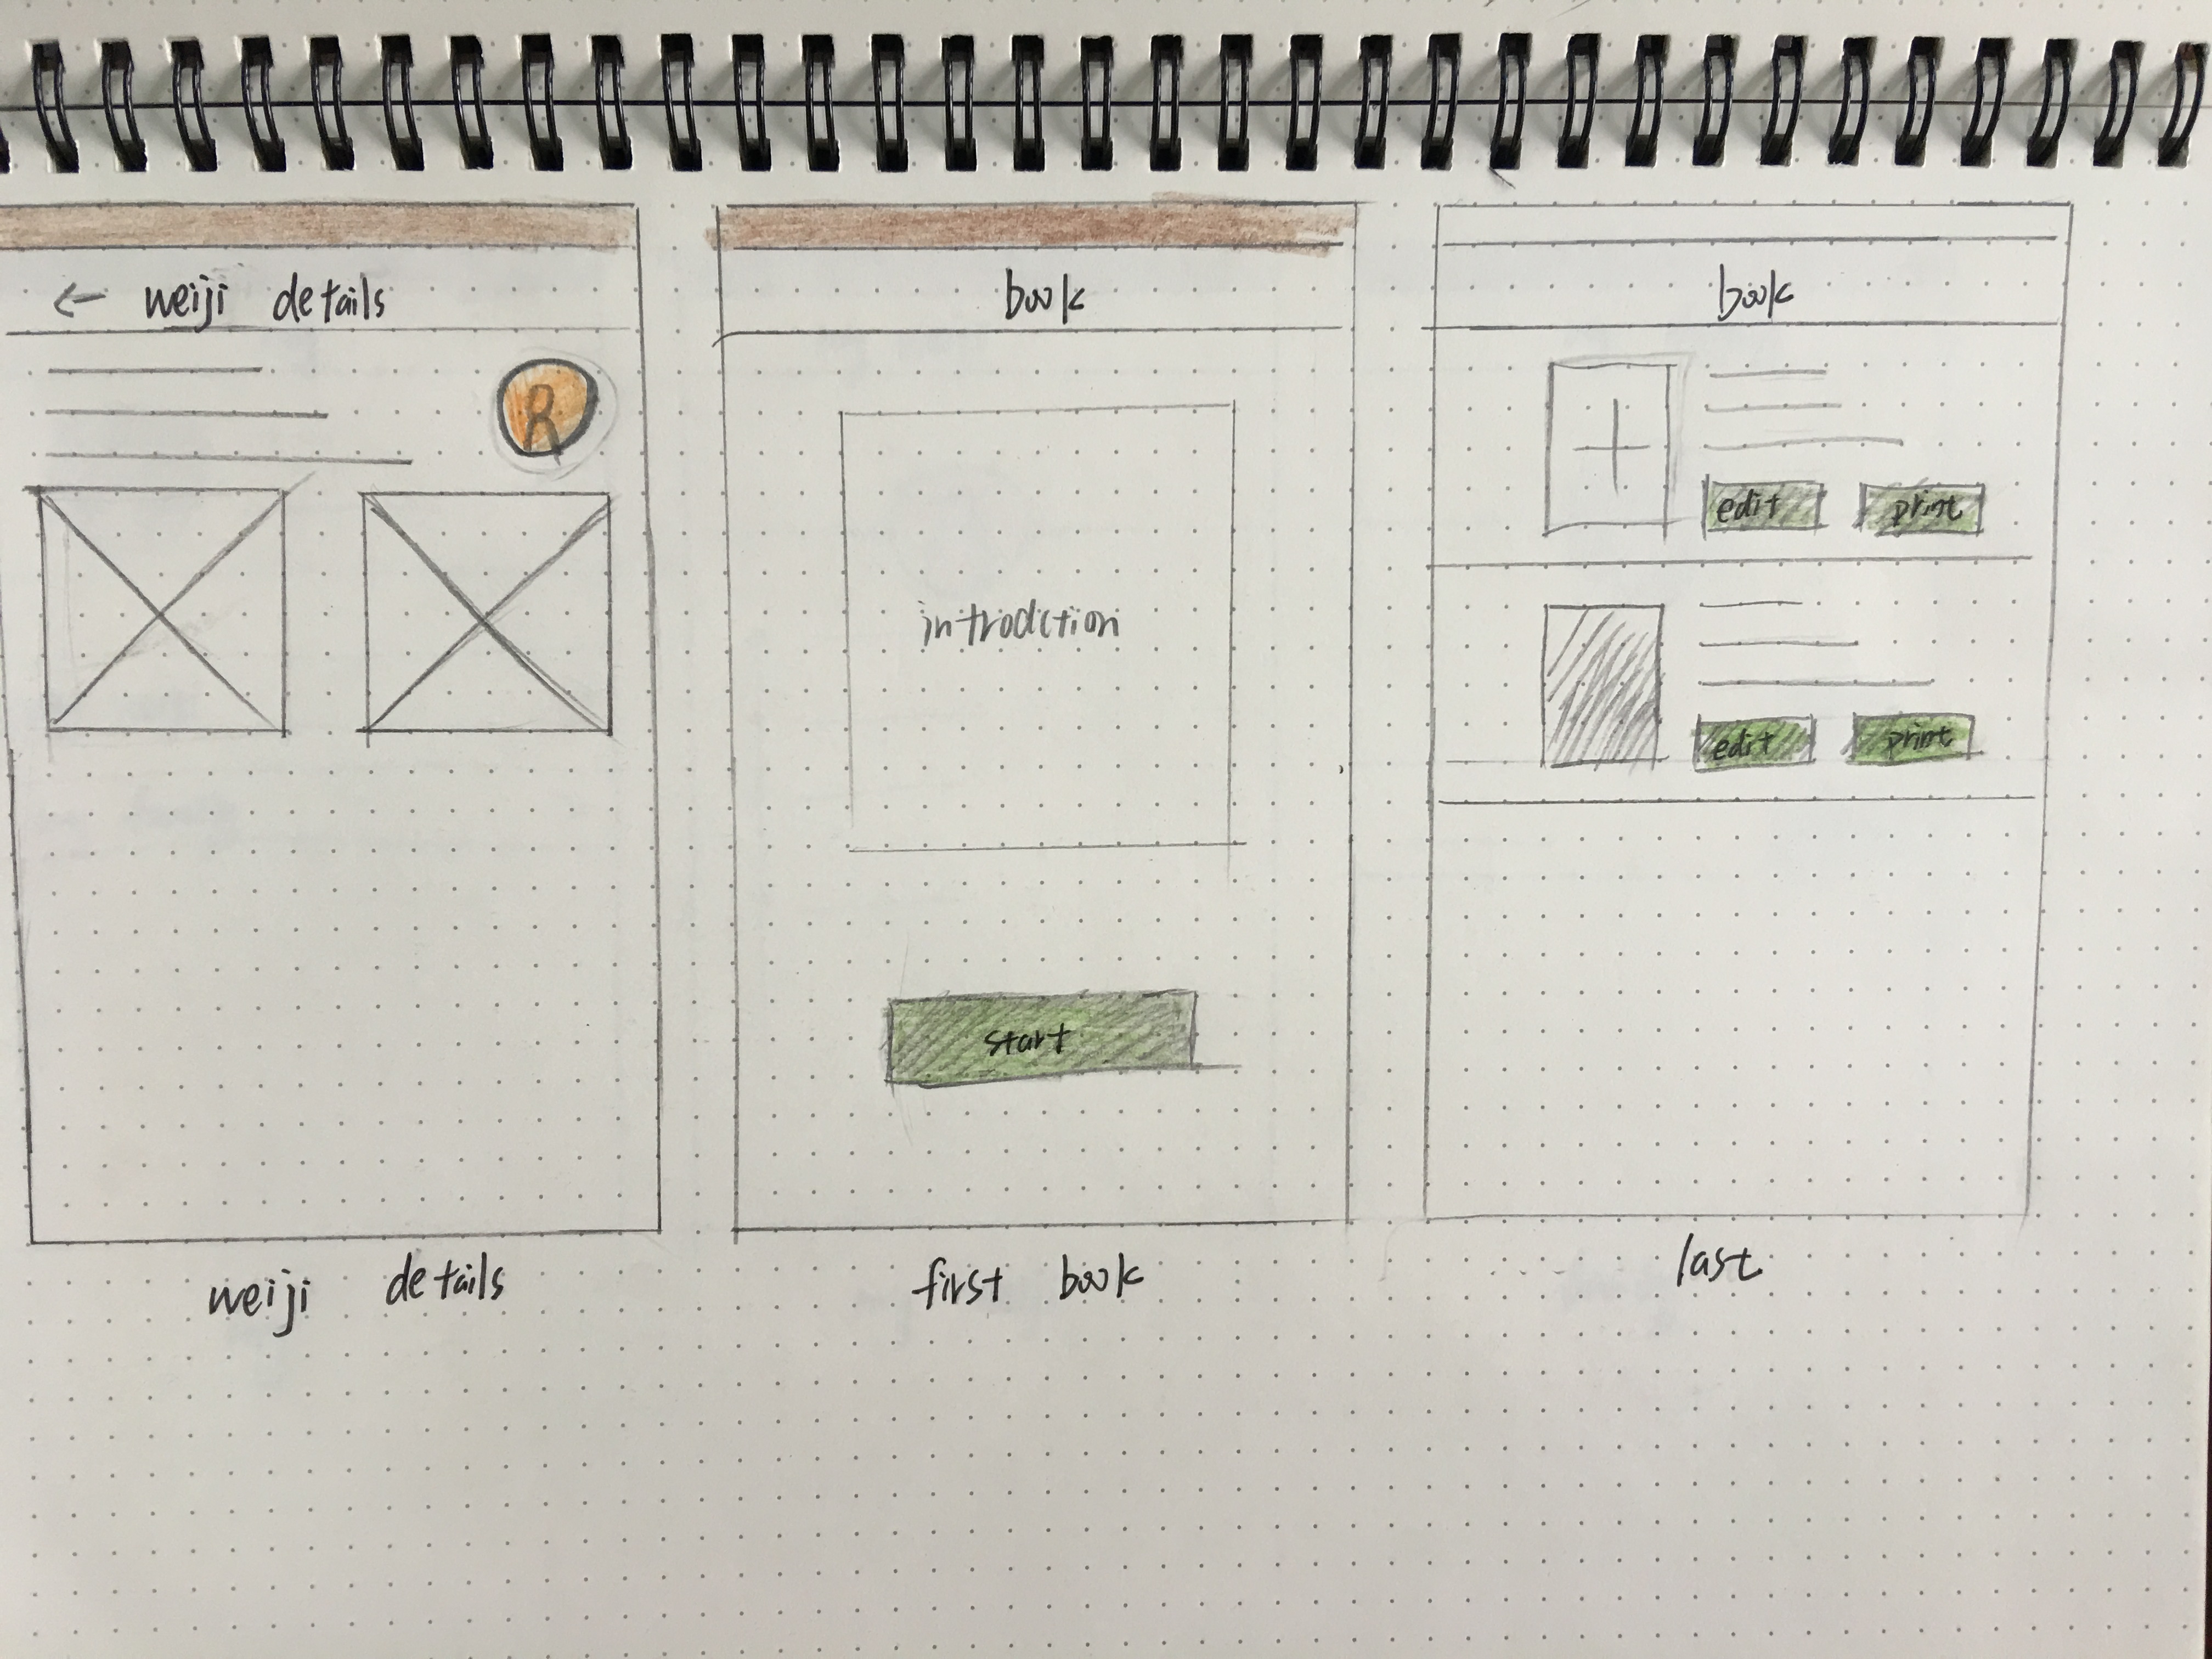 ← weiji details
R
weiji details
book
introdction
start
first book
book
edit print
edit print
last